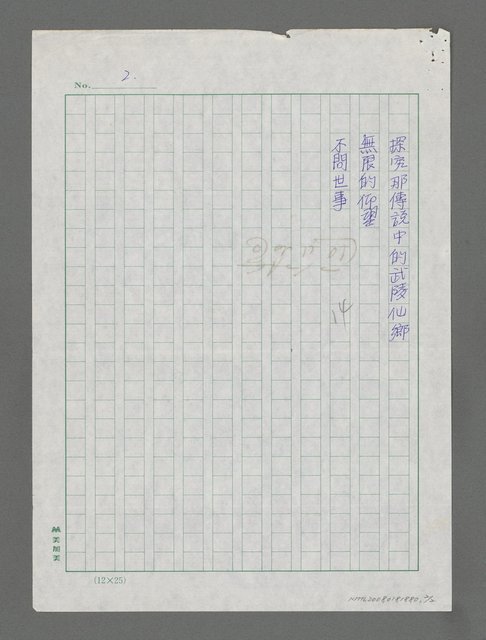 No. 2.
探究那傳說中的武陵仙鄉
無限的仰望
不問世事
14
美加美
(12×25)